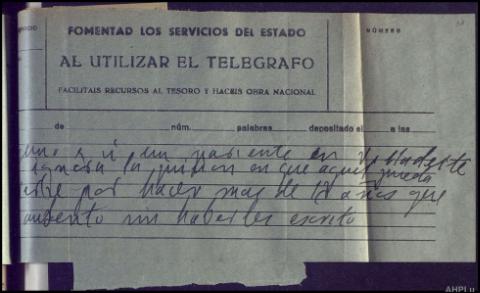 FOMENTAD LOS SERVICIOS DEL ESTADO
NÚMERO
AL UTILIZAR EL TELEGRAFO
FACILITAIS RECURSOS AL TESORO Y HACEIS OBRA NACIONAL
de núm. palabras, depositado el a las
uno y ni un pariente en
ignoran la quien en que aquel pueda
por hacer mas de 18 años que
ausento sin haberles escrito
AHPLu